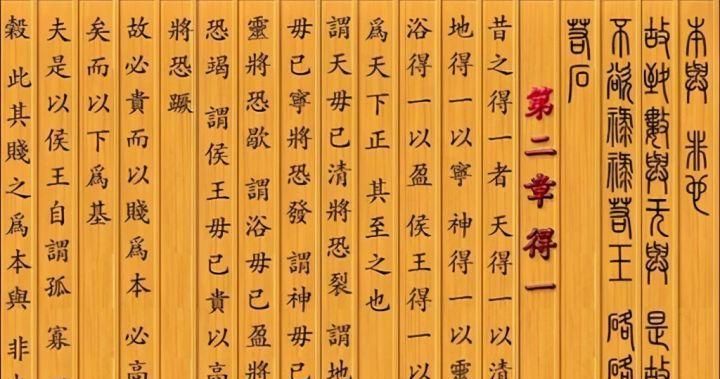 本與 非也
故致數與无與 是故
不欲祿祿若玉 硌硌
若石
第二章得一
昔之得一者 天得一以清
地得一以寧 神得一以靈
浴得一以盈 侯王得一以
爲天下正 其至之也
謂天毋已清將恐裂 謂地
毋已寧將恐發 謂神毋已
靈將恐歇 謂浴毋已盈將
恐竭 謂侯王毋已貴以高
將恐蹶
故必貴而以賤爲本 必高
矣而以下爲基
夫是以侯王自謂孤 寡
穀 此其賤之爲本與 非